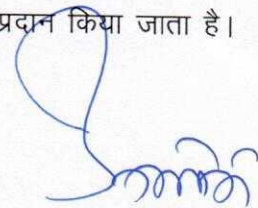 प्रदान किया जाता है।